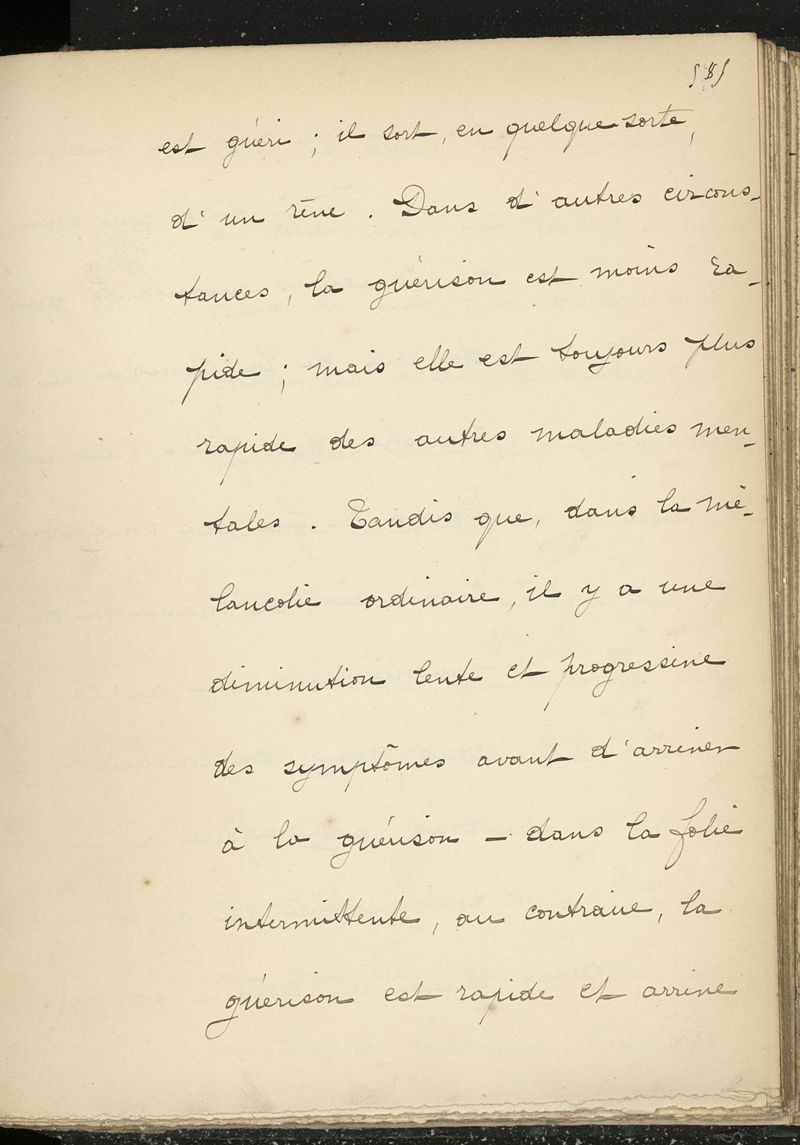 585
est guéri ; il sort, en quelque sorte,
d'un rêve. Dans d'autres circons-
tances, la guérison est moins ra-
pide ; mais elle est toujours plus
rapide des autres maladies men-
tales. Tandis que, dans la mé-
lancolie ordinaire, il y a une
diminution lente et progressive
des symptômes avant d'arriver
à la guérison — dans la folie
intermittente, au contraire, la
guérison est rapide et arrive